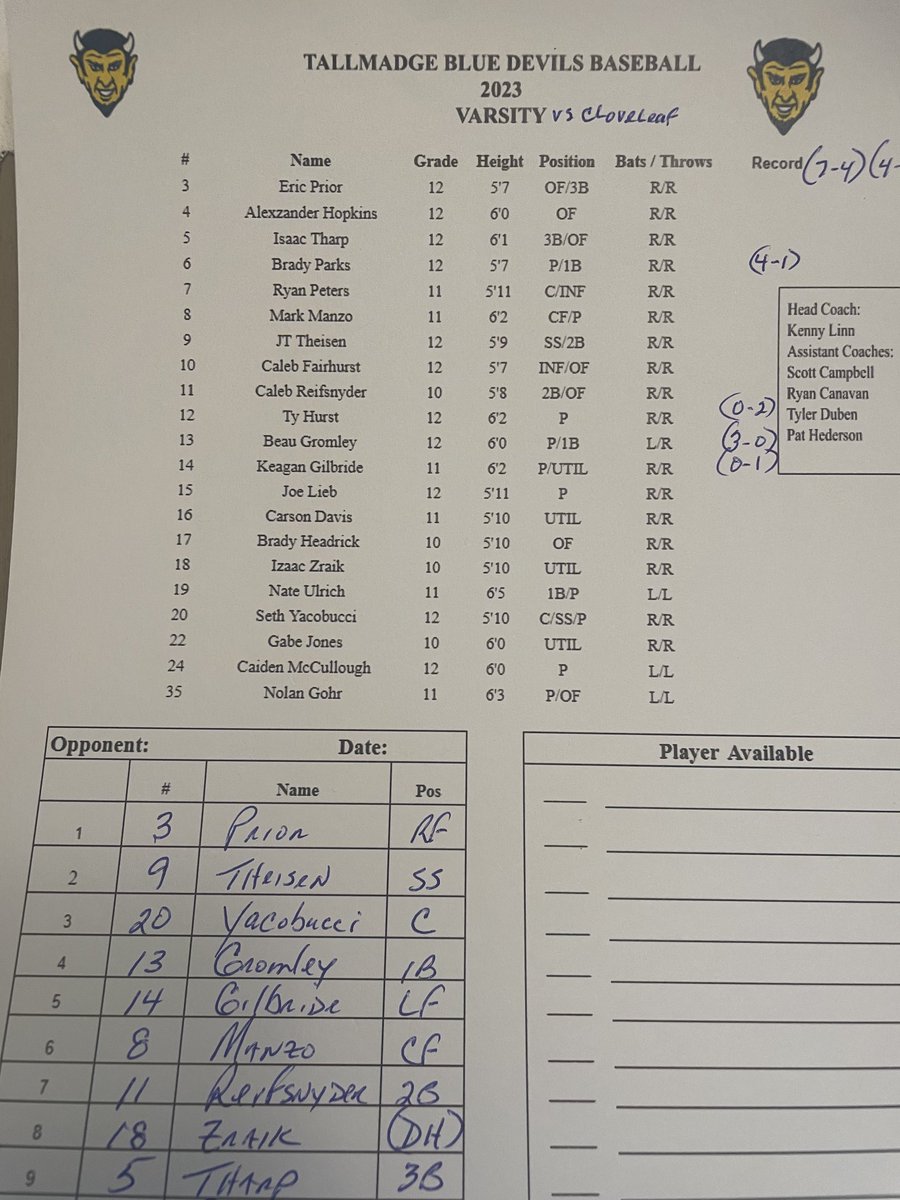 TALLMADGE BLUE DEVILS BASEBALL
2023
VARSITY vs Cloveleaf
# Name Grade Height Position Bats / Throws Record (7-4) (4-
3 Eric Prior 12 5'7 OF/3B R/R
4 Alexzander Hopkins 12 6'0 OF R/R
5 Isaac Tharp 12 6'1 3B/OF R/R
6 Brady Parks 12 5'7 P/1B R/R (4-1)
7 Ryan Peters 11 5'11 C/INF R/R
8 Mark Manzo 11 6'2 CF/P R/R
9 JT Theisen 12 5'9 SS/2B R/R
10 Caleb Fairhurst 12 5'7 INF/OF R/R
11 Caleb Reifsnyder 10 5'8 2B/OF R/R
12 Ty Hurst 12 6'2 P R/R (0-2)
13 Beau Gromley 12 6'0 P/1B L/R (3-0)
14 Keagan Gilbride 11 6'2 P/UTIL R/R (0-1)
15 Joe Lieb 12 5'11 P R/R
16 Carson Davis 11 5'10 UTIL R/R
17 Brady Headrick 10 5'10 OF R/R
18 Izaac Zraik 10 5'10 UTIL R/R
19 Nate Ulrich 11 6'5 1B/P L/L
20 Seth Yacobucci 12 5'10 C/SS/P R/R
22 Gabe Jones 10 6'0 UTIL R/R
24 Caiden McCullough 12 6'0 P L/L
35 Nolan Gohr 11 6'3 P/OF L/L
Head Coach:
Kenny Linn
Assistant Coaches:
Scott Campbell
Ryan Canavan
Tyler Duben
Pat Hederson
Opponent: Date:
# Name Pos
1 3 Prior RF
2 9 Theisen SS
3 20 Yacobucci C
4 13 Gromley 1B
5 14 Gilbride LF
6 8 Manzo CF
7 11 Reifsnyder 2B
8 18 Zraik (DH)
9 5 Tharp 3B
Player Available